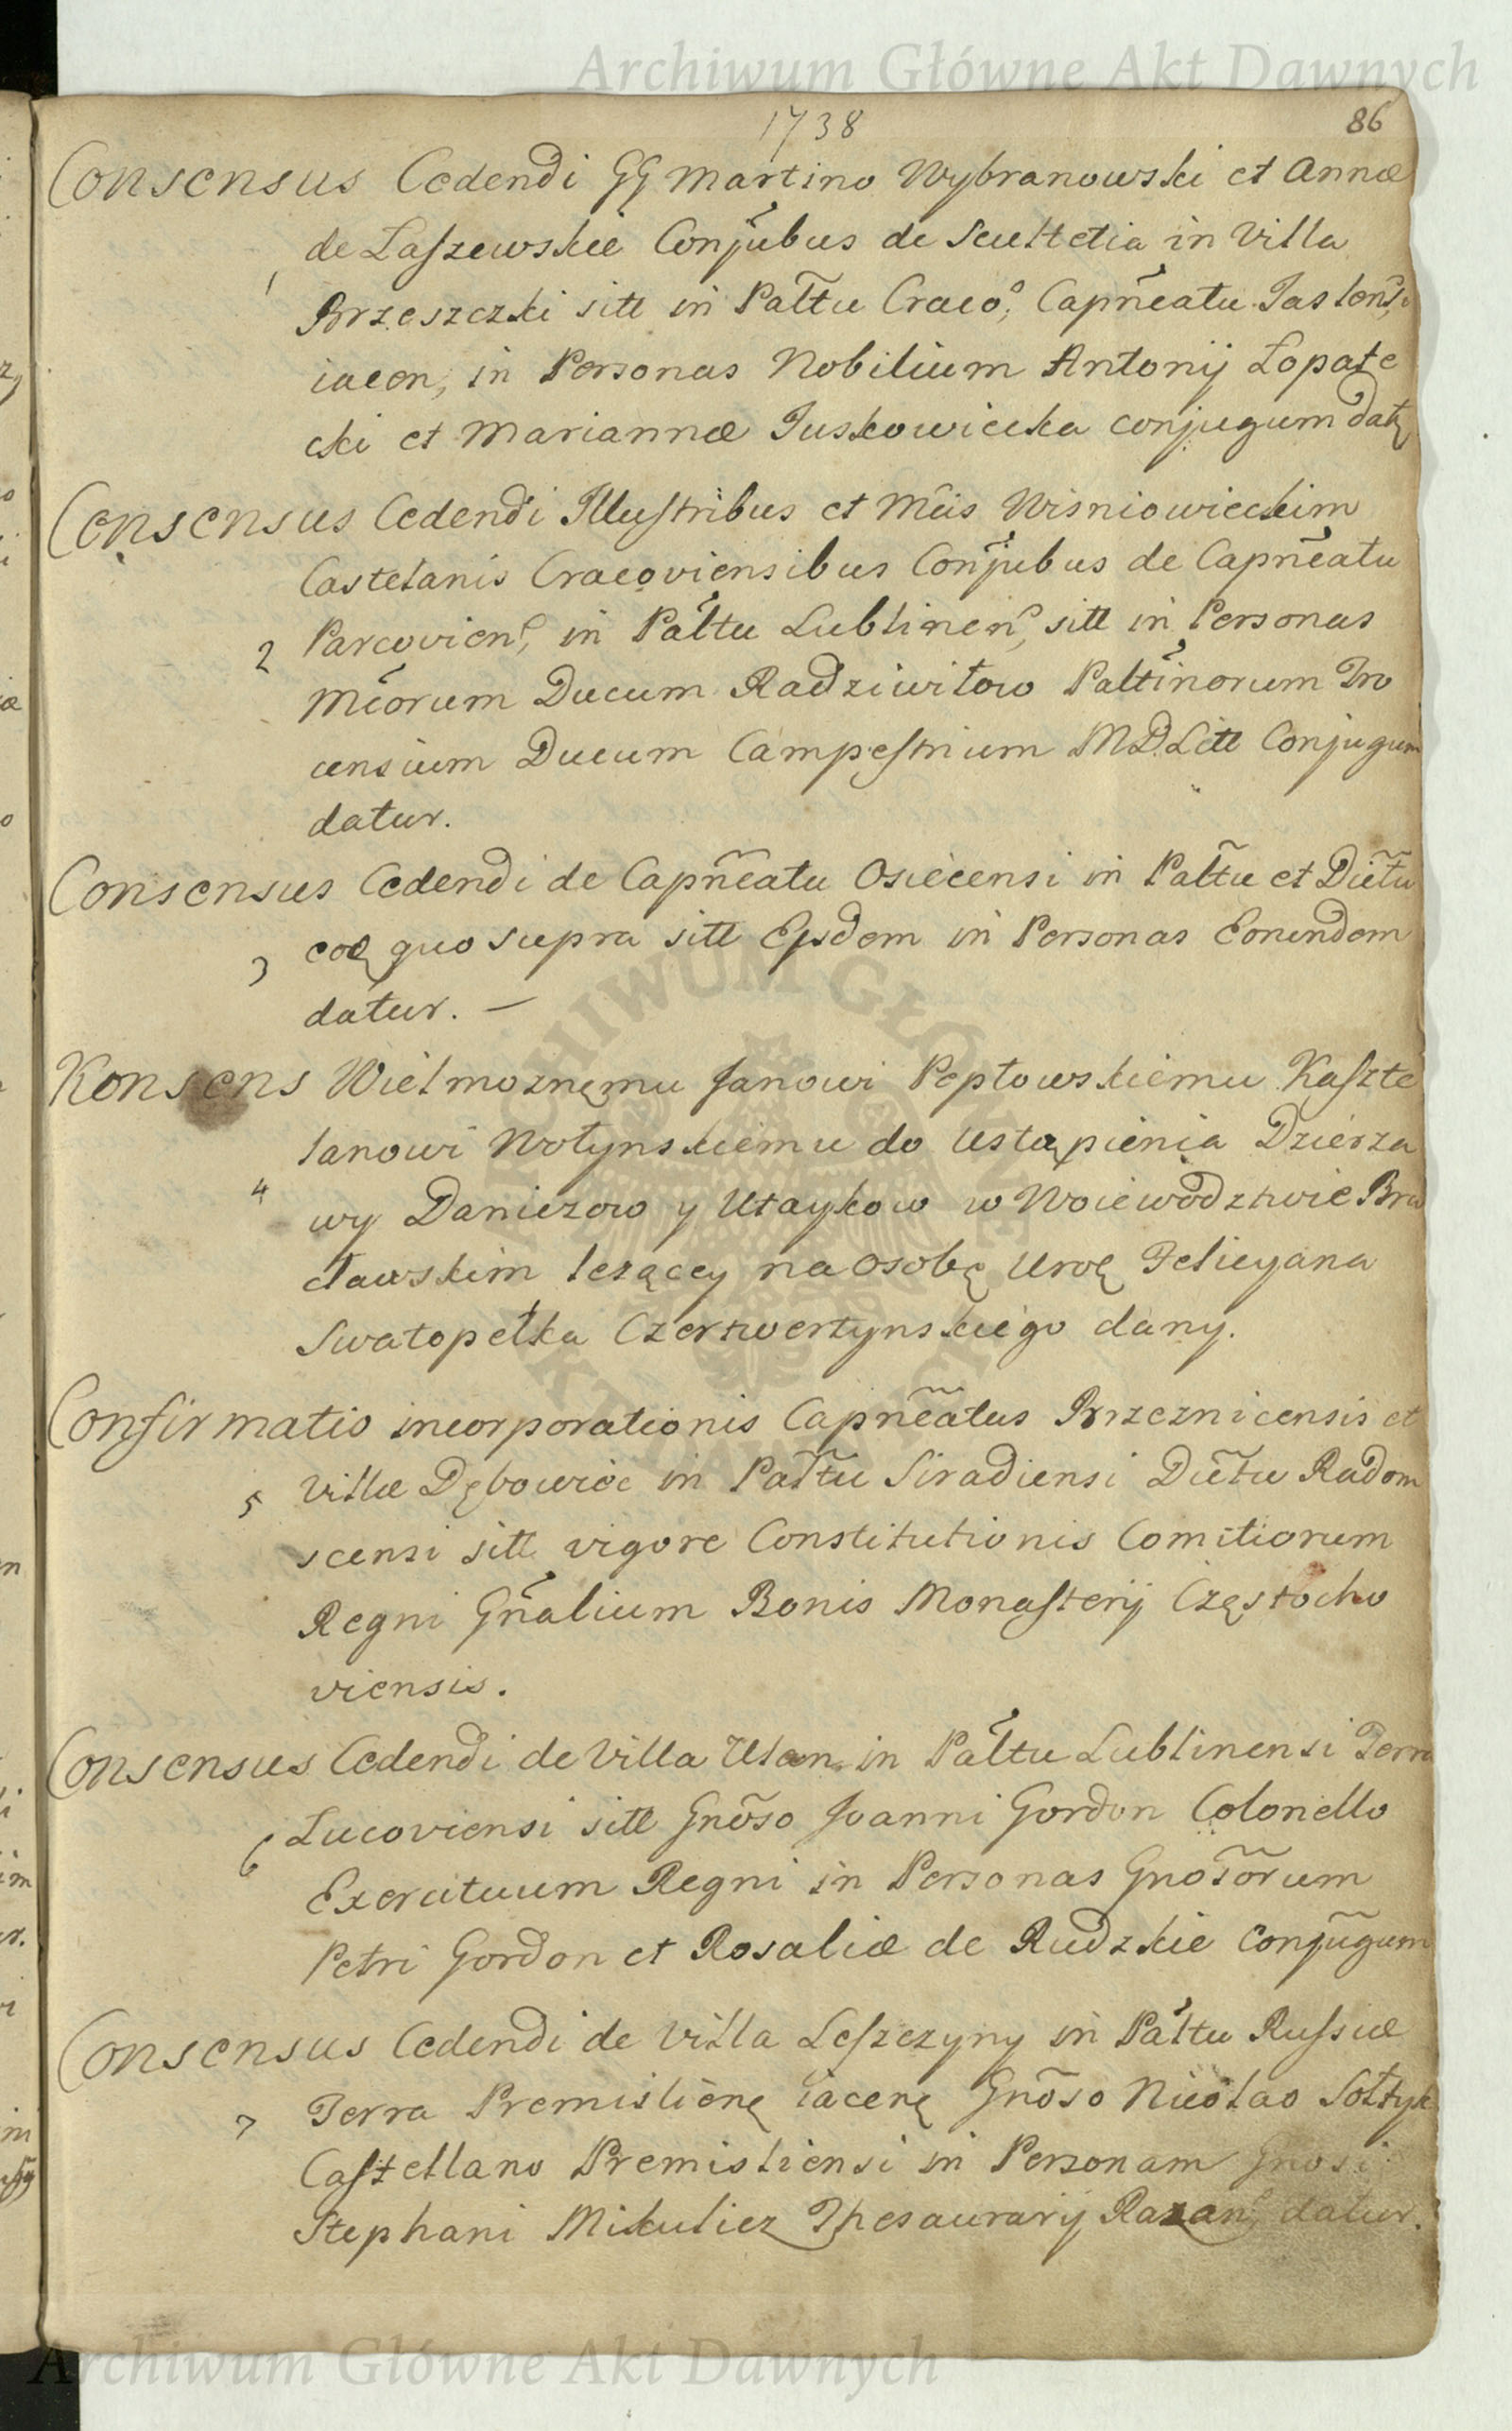 Archiwum Główne Akt Dawnych
1738
86
Consensus Cedendi GG Martino Wybranowski et Annæ
de Laszewskie Conjubus de Scultetia in Villa
1 Brzeszczki sitt in Paltu Craco, Capneatu Jaslensi
iacen, in Personas Nobilium Antonij Lopate
cki et Mariannæ Juskowiecka conjugum datz
Consensus Cedendi Illustribus et Mcis Wisniowieckim
Castelanis Cracoviensibus Conjubus de Capneatu
2 Parcovien, in Paltu Lublinen, sitt in Personas
Mcorum Ducum Radziwiłow Paltinorum Tro
censium Ducum Campestrium M.D.Litt Conjugum
datur.
Consensus Cedendi de Capneatu Osiecensi in Paltu et Dictu
3 eoq quo supra sitt Eysdem in Personas Eorundem
datur. —
Konsens Wielmoznemu Janowi Peptowskiemu Kaszte
lanowi Wołynskiemu do Ustąpienia Dzierza
4 wy Daniezow y Utaykow w Woiewodztwie Bra
cławskim lezącey na Osobę Uroę Felicyana
Swatopełka Czertwertynskiego dany.
Confirmatio incorporationis Capneatus Brzeznicensis et
5 Villæ Dębowiec in Paltu Siradiensi Dictu Radom
scensi sitt vigore Constitutionis Comitiorum
Regni Gnalium Bonis Monasterij Częstocho
viensis.
Consensus Cedendi de Villa Ulan in Paltu Lublinensi Terra
6 Lucoviensi sitt Gnoso Joanni Gordon Colonello
Exercituum Regni in Personas Gnosorum
Petri Gordon et Rosaliæ de Rudzkie Conjugum
Consensus Cedendi de Villa Leszczyny in Paltu Russiæ
7 Terra Premislienę iacenę Gnoso Nicolao Sołtyk
Castellano Premisliensi in Personam Gnosi
Stephani Mikulicz Thesaurarij Razan, datur.
Archiwum Główne Akt Dawnych